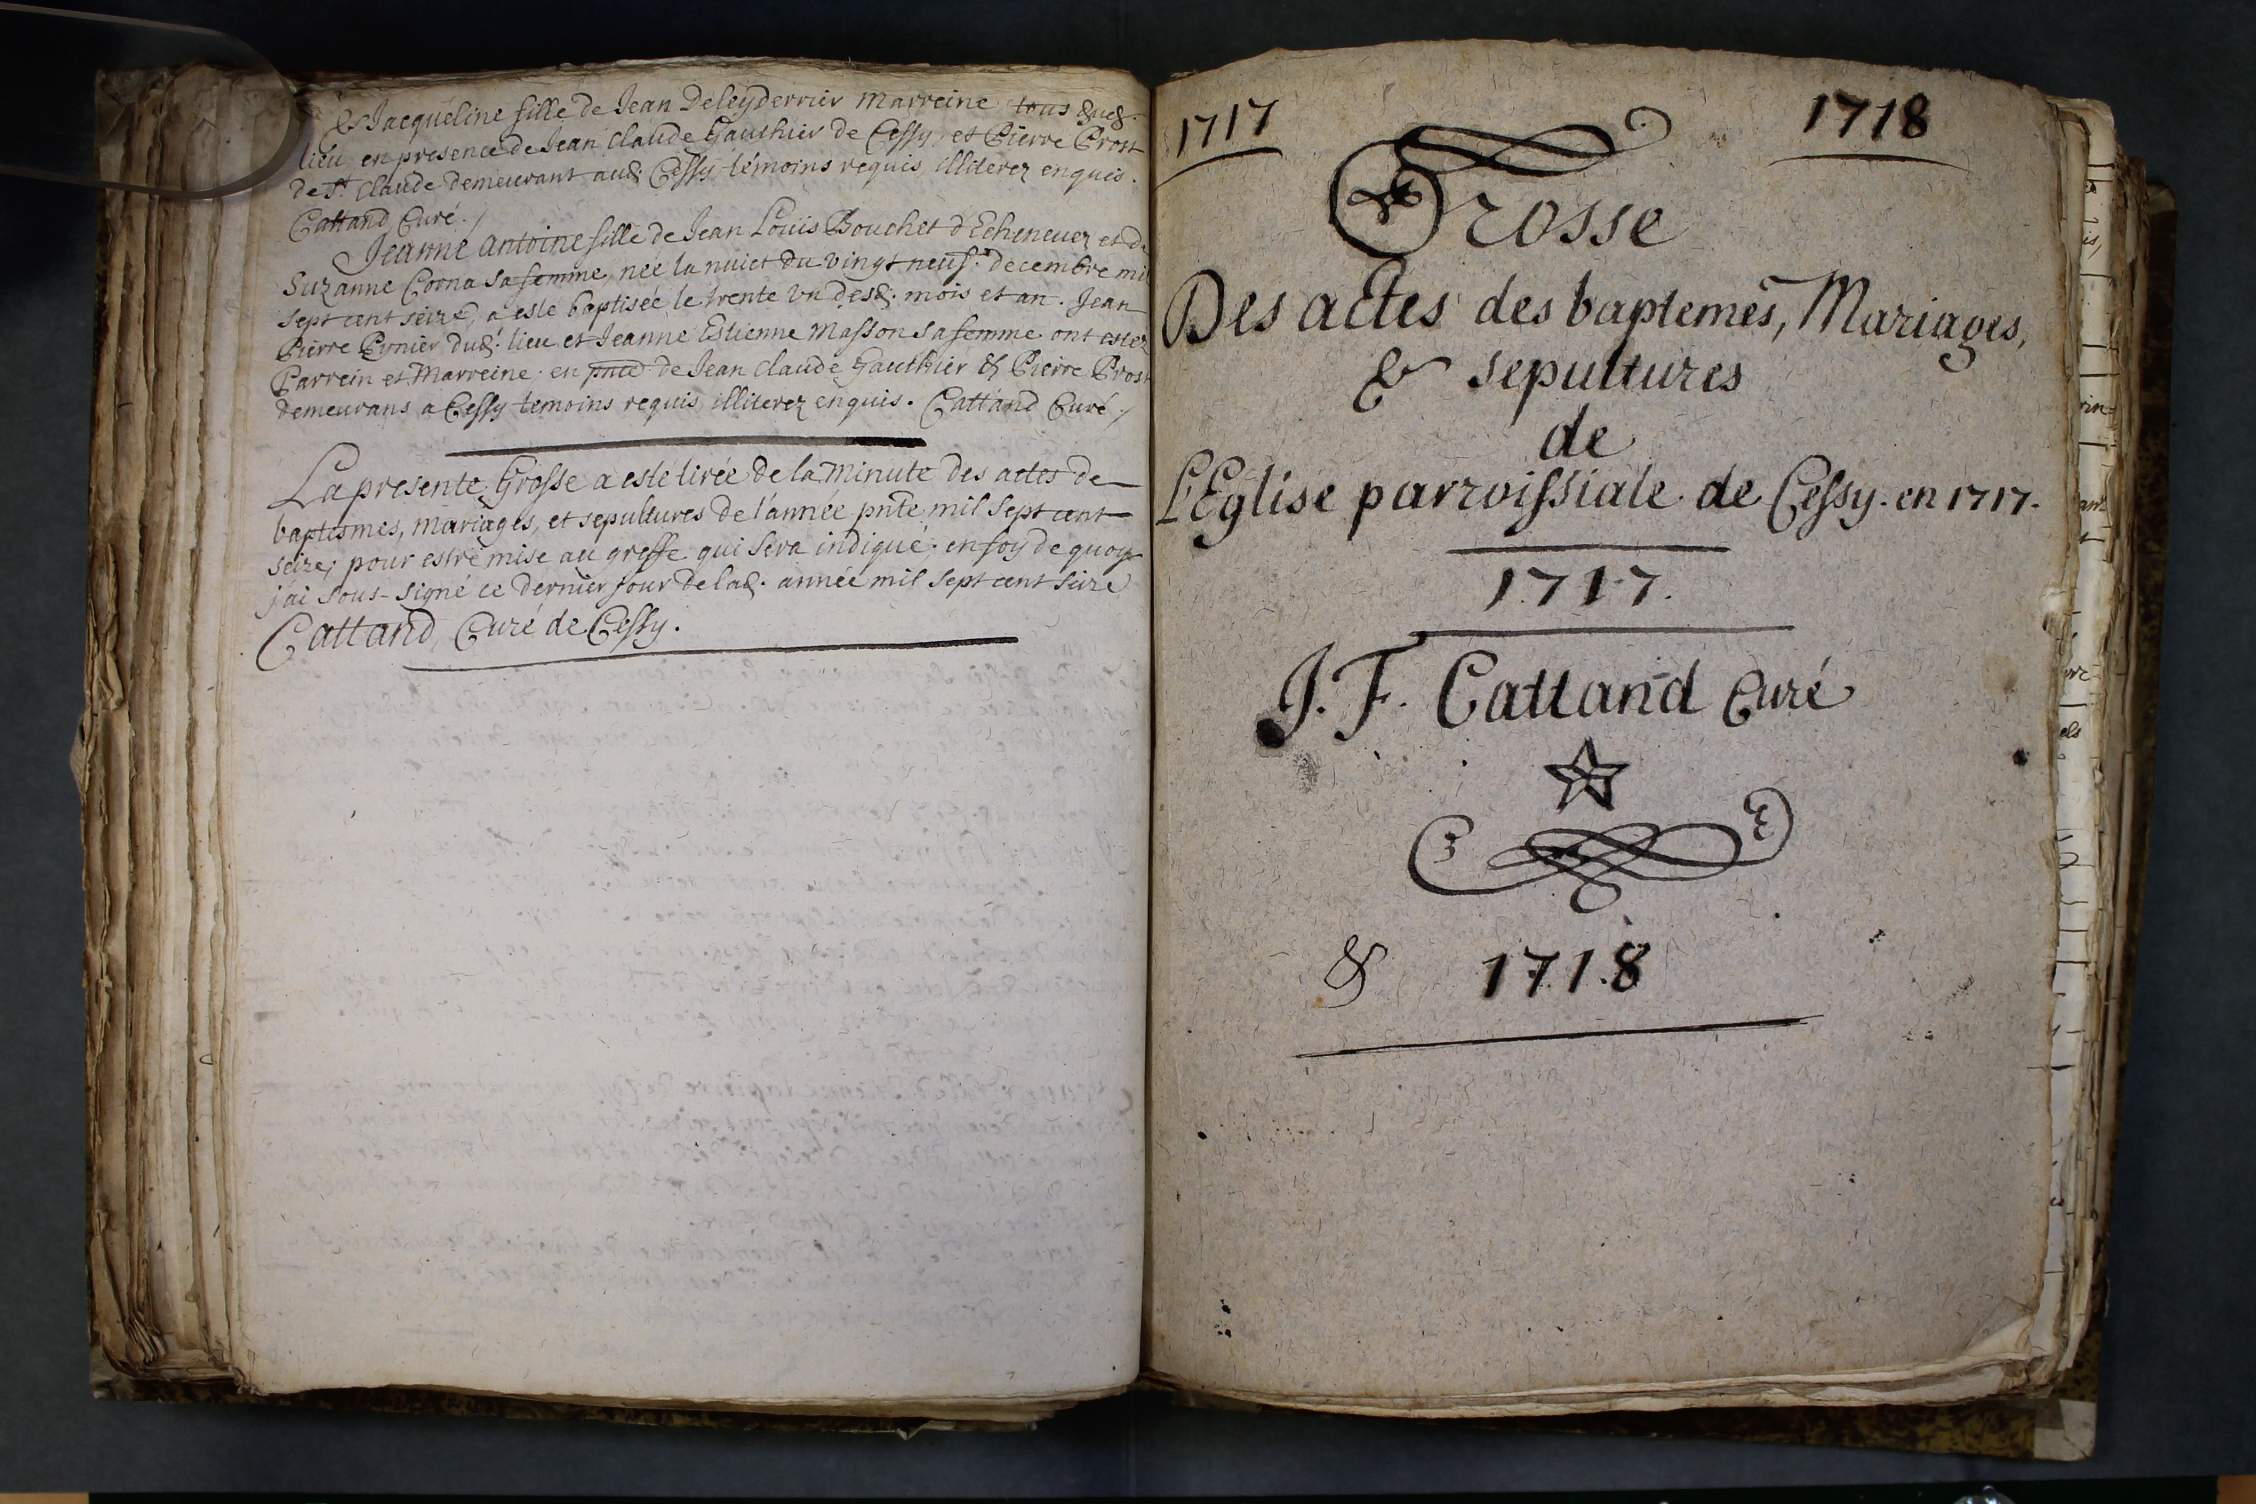 & Jacqueline fille de Jean Deleyderrier Marreine tous dud.
lieu en presence de Jean Claude Gauthier de Cessy, et Pierre Prost
de St. Claude demeurant aud. Cessy témoins requis illiterez enquis.
Cattand Curé.
Jeanne Antoine fille de Jean Louis Bouchet d'Echenevez et de
Suzanne Corna sa femme, née la nuict du vingt neuf.e decembre mil
sept cent seize, a esté baptisée le trente un desd. mois et an. Jean
Pierre Eynier dud. lieu et Jeanne Estienne Masson sa femme ont estez
Parrein et Marreine. en pnce de Jean Claude Gauthier & Pierre Prost
demeurans a Cessy temoins requis illiterez enquis. Cattand Curé.
La presente Grosse a este tirée de la Minute des actes de
baptesmes, mariages, et sepultures de l'année pnte mil sept cent
seize, pour estre mise au greffe qui sera indiqué; en foy de quoy
j'ai sous-signé ce dernier jour de lad. année mil sept cent seize
Cattand, Curé de Cessy.
1717 1718
Grosse
Des actes des baptemes, Mariages,
& sepultures
de
L'Eglise parroissiale de Cessy. en 1717.
1717.
J. F. Cattand Curé
& 1718